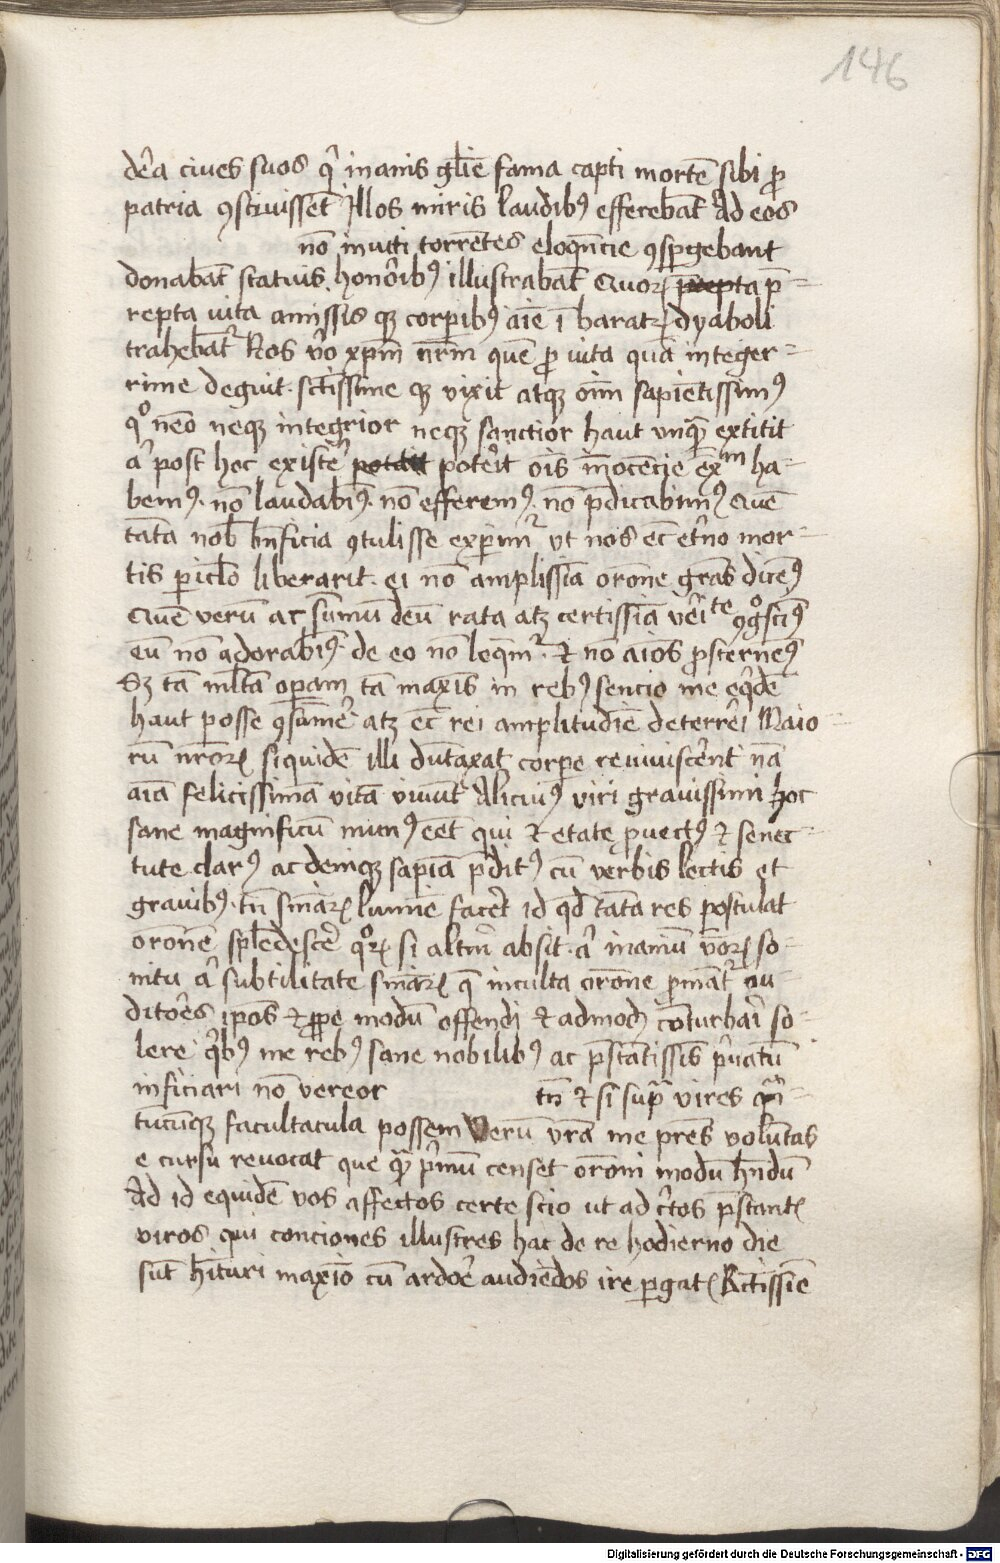 146
dēa ciues suos q̇ inanis gľie fama capti mortē sibi ꝓ
patria ꝯsciuissēt Illos miris laudibꝰ efferebāt Ad eos
nō inuiti torrētes eloqūcie ꝯspgebant
donabāt statuis. honōribꝰ illustrabāt Quoꝝ p̄-
repta uita amissis qꝫ corpibꝰ aīe ī baratꝝ dyaboli
trahebāt᷑ Nos v̄o xp̄m nr̄m quē ꝓ uita quā integer-
rime deguit. sctīssime qꝫ vixit atqꝫ oīm sapiētissimꝰ
qͦ nēo neqꝫ integrior neqꝫ sanctior haut vnqꝫ extitit
a post hec existē potēit oīs īnocēcie ex̄m ha-
bemꝰ. nō laudabīꝰ. nō efferemꝰ. nō p̄dicabimꝰ Quē
tāta nob̄ bn̄ficia ꝯtulisse expim᷑ vt nos ec̄ etn̄o mor-
tis picl̄o liberarit. ei nō amplissīa orōne grās dicēꝰ
Quē verū ac sūmū deū rata atꝫ certissīa vēite ꝯgͦscīꝰ
eū nō adorabīꝰ. de eo nō loqm᷑. & nō aīos ꝓsternēꝰ
Sꝫ tā ml̄ta opam tā maxīs in rebꝰ sencio me eqdē
haut posse ꝯsūmē atꝫ ec̄ rei amplitudīe deterrēi Maio
rū nr̄oꝝ siquidē illi dūtaxat corpe reuiuiscēnt nā
aīā felicissimā vitā viuūt Alicuiꝰ viri grauissimi hoc
sane magnificū munꝰ eēt qui & etate ꝓuectꝰ & senec-
tute clarꝰ ac deniqꝫ sapīa p̄ditꝰ cū verbis lectis et
grauibꝰ. tn̄ sn̄iaꝝ lumīe facēt id qd̄ tāta res postulat
orōnē spl̄edescē qͦꝝ si altm̄ absit. a inaniū v̄oꝝ so-
nitu a subtilitate sn̄iaꝝ q̄ inculta orōne pmāt᷑ au-
ditōes ip̄os & ꝓpe modū offendi & admodꝫ cōturbari so-
lere q̇bꝰ me rebꝰ sane nobilibꝰ ac p̄stātissīs p̄uatū
inficiari nō vereor tn̄ & si sup̄ vires qn̄-
tucūqꝫ facultacula possem Verū vr̄a me pr̄es volūtas
e cursu reuocat que qꝫ p̄mū censet orōni modū hn̄dū
Ad id equidē vos affectos certe scio ut ad cētos p̄stantꝭ
viros qui conciones illustres hac de re hodierno die
sūt hītuƺi maxīo cū ardōe audiēdos ire pgatꝭ Rctīssīe
Digitalisierung gefördert durch die Deutsche Forschungsgemeinschaft - DFG